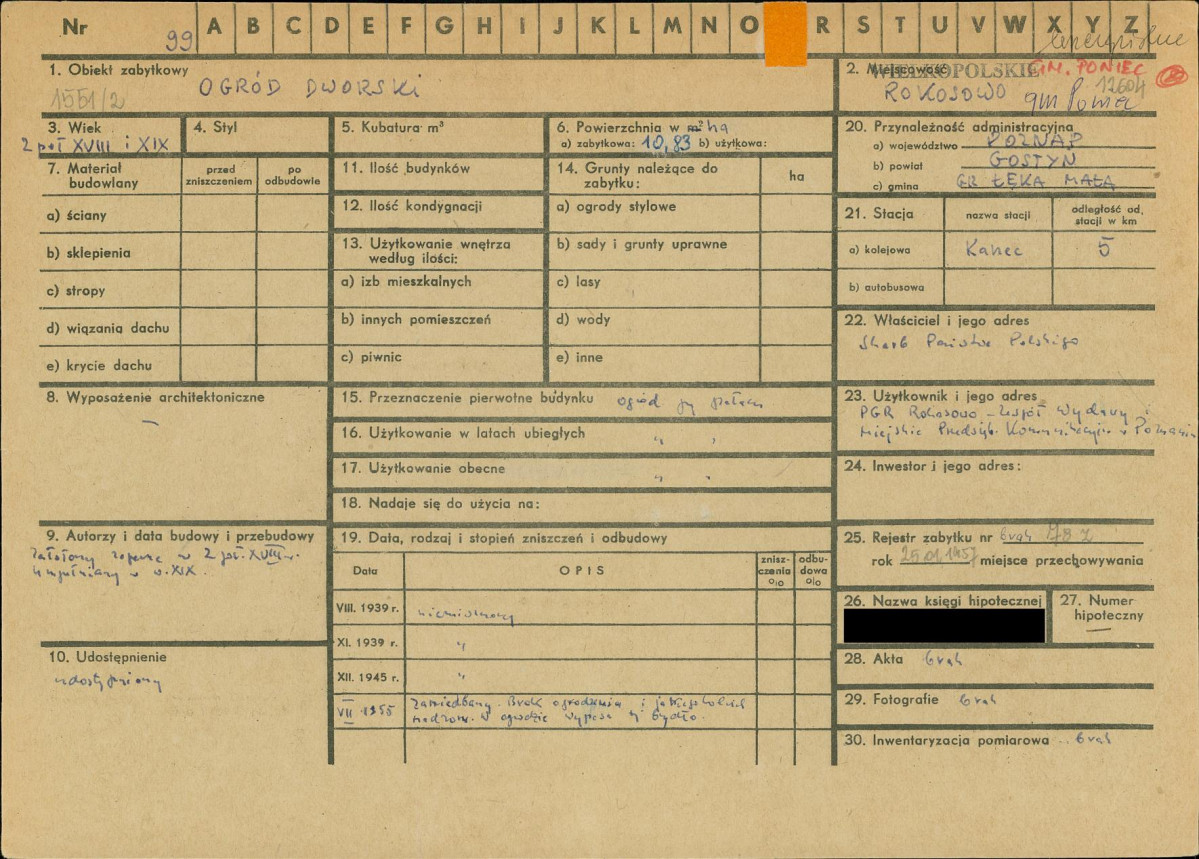 Nr 99 A B C D E F G H I J K L M N O R S T U V W X Y Z
1. Obiekt zabytkowy
OGRÓD DWORSKI
1551/2
2. Miejscowość
WIELKOPOLSKIE
GM. PONIEC
ROKOSOWO
12604
3. Wiek
2 poł XVIII i XIX
4. Styl
5. Kubatura m³
6. Powierzchnia w m² ha
a) zabytkowa: 10,83 b) użytkowa:
20. Przynależność administracyjna
a) województwo POZNAŃ
b) powiat GOSTYŃ
c) gmina GR ŁĘKA MAŁA
7. Materiał budowlany
przed zniszczeniem
po odbudowie
a) ściany
b) sklepienia
c) stropy
d) wiązania dachu
e) krycie dachu
11. Ilość budynków
12. Ilość kondygnacji
13. Użytkowanie wnętrza
według ilości:
a) izb mieszkalnych
b) innych pomieszczeń
c) piwnic
14. Grunty należące do
zabytku:
ha
a) ogrody stylowe
b) sady i grunty uprawne
c) lasy
d) wody
e) inne
21. Stacja
nazwa stacji
odległość od stacji w km
a) kolejowa Kaniec 5
b) autobusowa
22. Właściciel i jego adres
Skarb Państwa Polskiego
8. Wyposażenie architektoniczne
—
15. Przeznaczenie pierwotne budynku ogród przy pałacu
16. Użytkowanie w latach ubiegłych " "
17. Użytkowanie obecne " "
18. Nadaje się do użycia na:
23. Użytkownik i jego adres
PGR Rokosowo - Zespół Wydawy i
Miejskie Przedsięb. Komunikacyjne w Poznaniu
24. Inwestor i jego adres:
9. Autorzy i data budowy i przebudowy
Założony zapewne w 2 poł. XVIII w.
uzupełniany w w. XIX.
10. Udostępnienie
udostępniony
19. Data, rodzaj i stopień zniszczeń i odbudowy
Data
OPIS
zniszczenia o/o
odbudowa o/o
VIII. 1939 r.
XI. 1939 r. "
XII. 1945 r. "
VII 1955 Zaniedbany. Brak ogrodzenia i jakiegokolwiek
nadzoru. W ogrodzie wypasa się bydło.
25. Rejestr zabytku nr brak 78 z
rok 25.01.1957 miejsce przechowywania
26. Nazwa księgi hipotecznej
27. Numer
hipoteczny
—
28. Akta brak
29. Fotografie brak
30. Inwentaryzacja pomiarowa brak